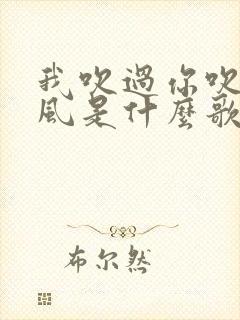 我吹過你吹
風是什麼歌
布尔然